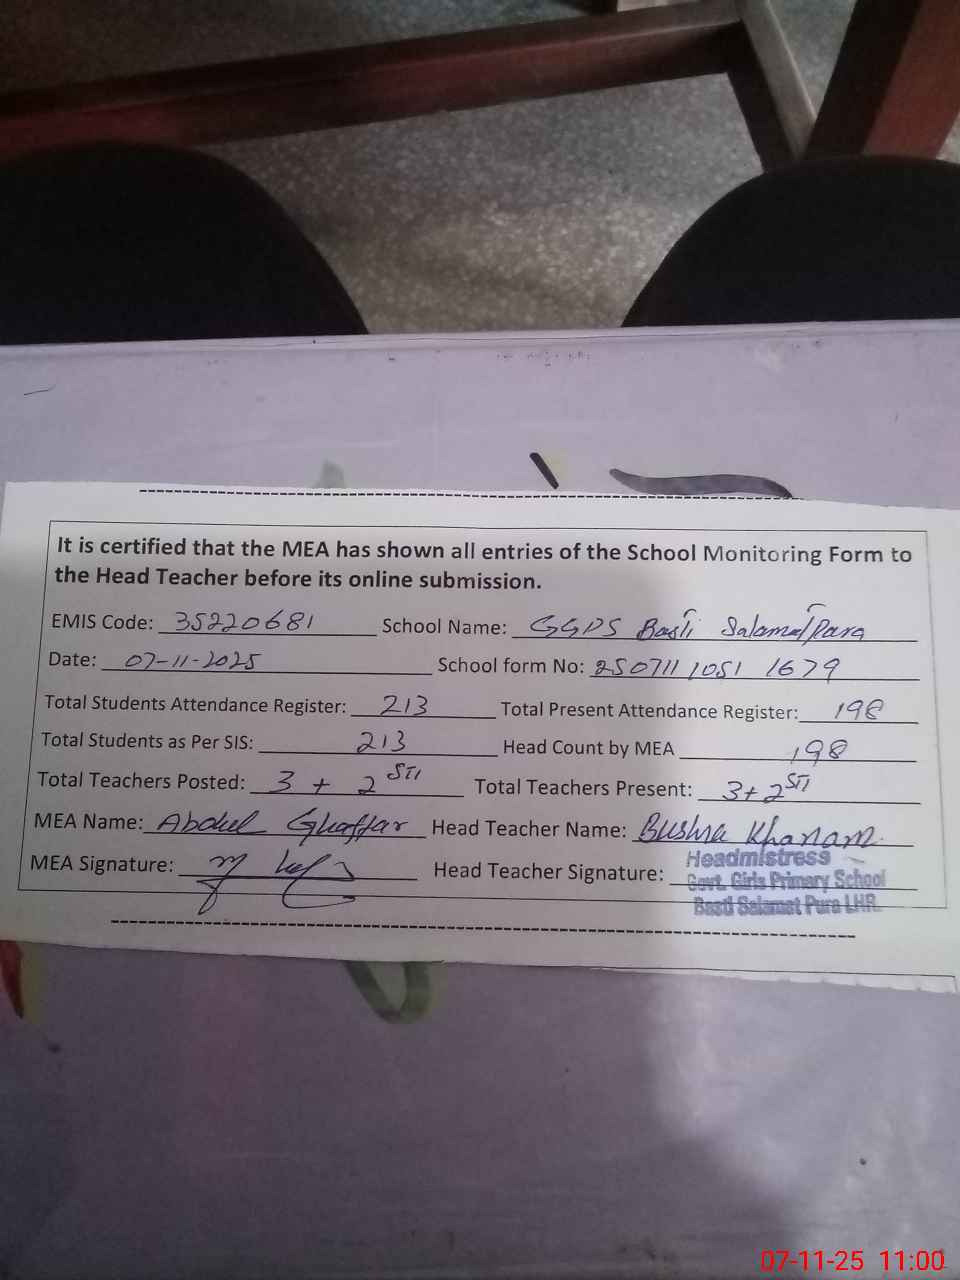 It is certified that the MEA has shown all entries of the School Monitoring Form to
the Head Teacher before its online submission.
EMIS Code: 35220681 School Name: GGPS Basti Salamat Pura
Date: 07-11-2025 School form No: 250711 1051 1679
Total Students Attendance Register: 213 Total Present Attendance Register: 198
Total Students as Per SIS: 213 Head Count by MEA 198
Total Teachers Posted: 3 + 2 STI Total Teachers Present: 3+2 STI
MEA Name: Abdul Ghaffar Head Teacher Name: Bushra Khanam.
MEA Signature: Head Teacher Signature:
Headmistress
Govt. Girls Primary School
Basti Salamat Pura LHR.
07-11-25 11:00